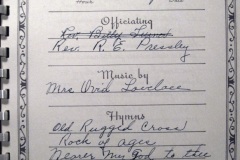 Officiating
Rev. Billy
Rev. R. E. Pressley
Music by
Mrs Ovid Lovelace
Hymns
Old Rugged Cross
Rock of ages
Nearer My God to thee